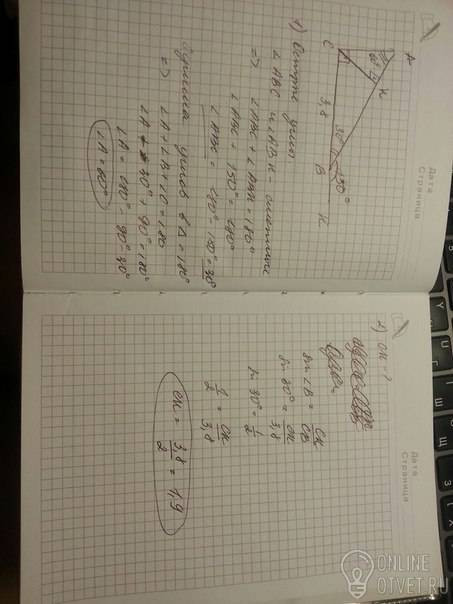 Дата
Страница
A
60°
K
C
3,8
30°
150°
B
K
1) Острые углы
∠ABC и ∠ABK - смежные
=> ∠ABC + ∠ABK = 180°
∠ABC = 150° = 180°
∠ABC = 180° - 150° = 30°
Сумма углов в Δ = 180°
=> ∠A + ∠B + ∠C = 180
∠A + 30° + 90° = 180°
∠A = 180° - 90° - 30°
∠A = 60°
Дата
Страница
2) CK - ?
sin ∠B = CK/CB
sin 30° = CK/3,8
sin 30° = 1/2
1/2 = CK/3,8
CK = 3,8/2 = 1,9
ONLINE
OTVET.RU